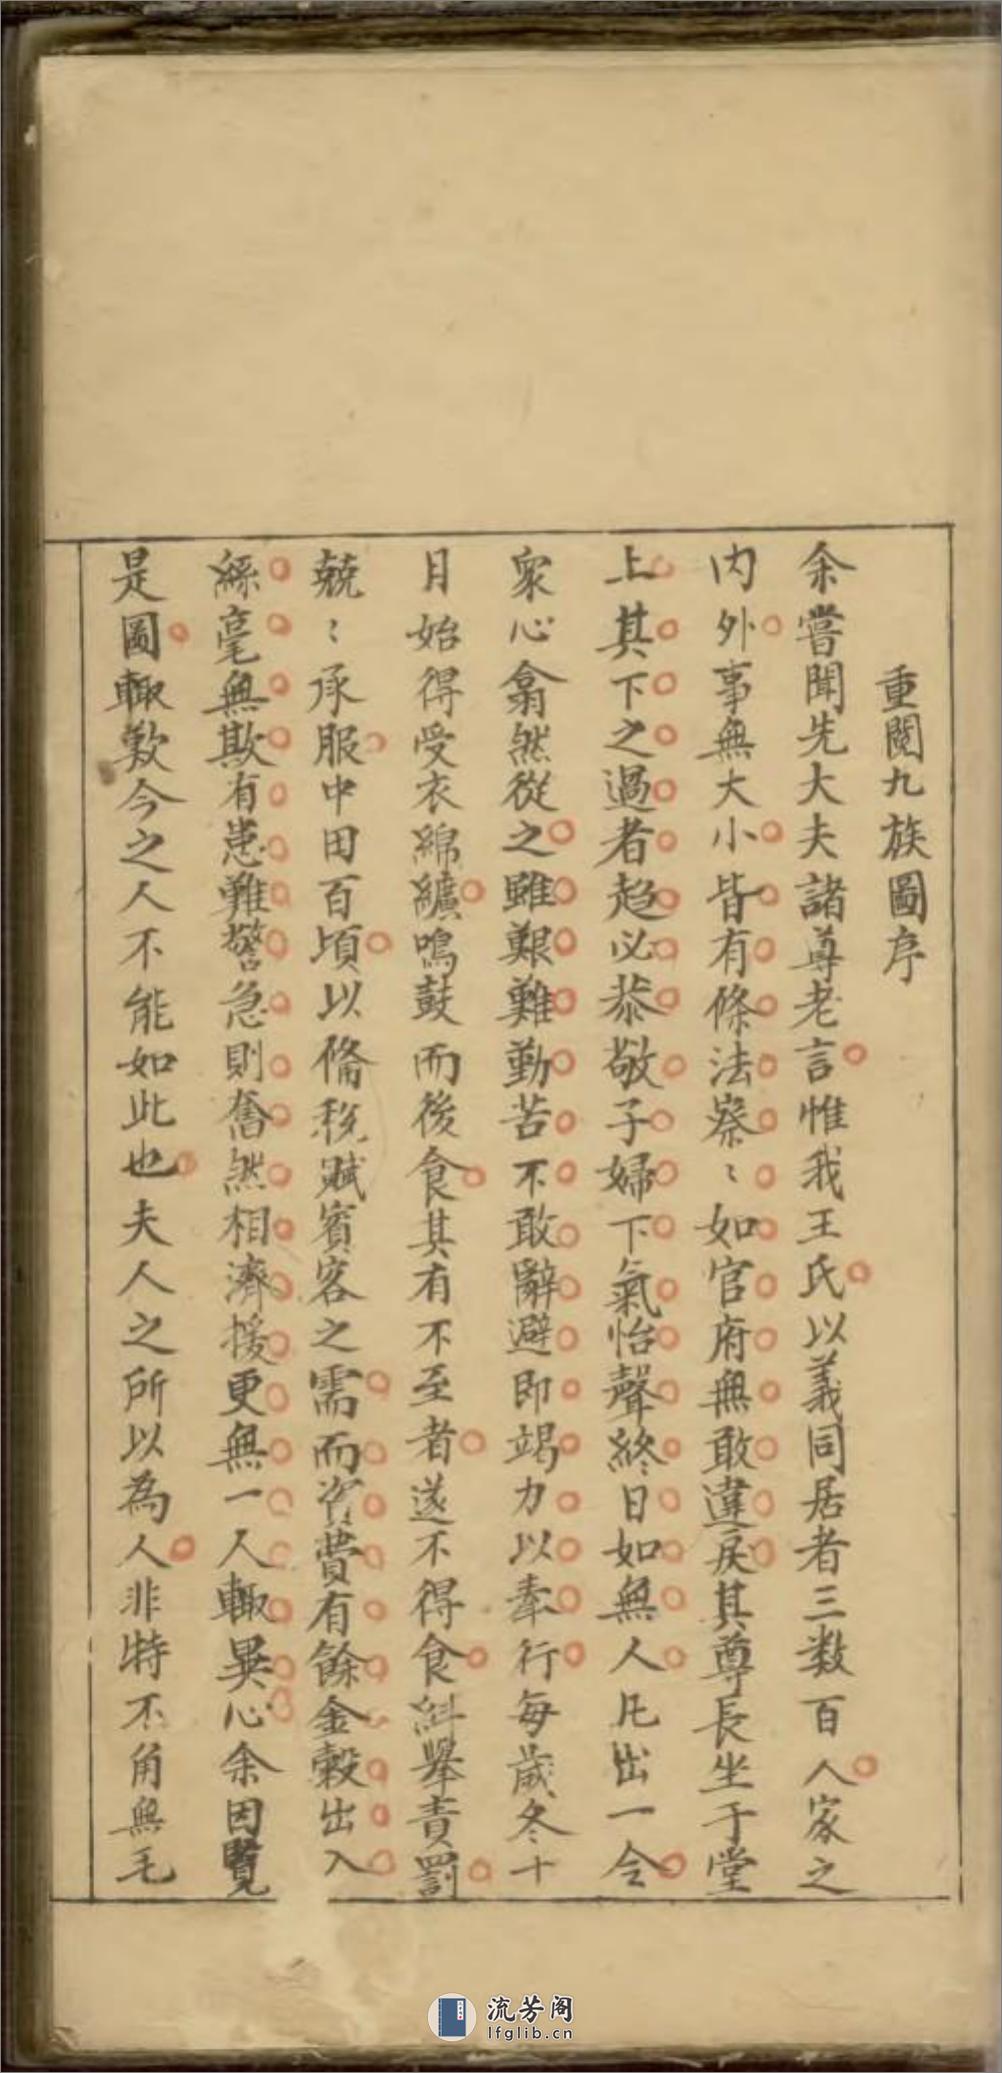 重閱九族圖序
余嘗聞先大夫諸尊老言惟我王氏以義同居者三数百人家之
内外事無大小皆有條法察〻如官府無敢違戾其尊長坐于堂
上其下之過者趋必恭敬子婦下氣怡聲終日如無人凡出一令
衆心翕然從之雖艱難勤苦不敢辭避即竭力以奉行每歲冬十
月始得受衣綿纊鳴鼓而後食其有不至者遂不得食糾舉責罰
兢〻承服中田百頃以偹稅賦賓客之需而資費有餘金榖出入
絲毫無欺有患難警急則奮然相濟援更無一人輙異心余因覽
是圖輙歎今之人不能如此也夫人之所以為人非特不角無毛
流芳阁
lfglib.cn